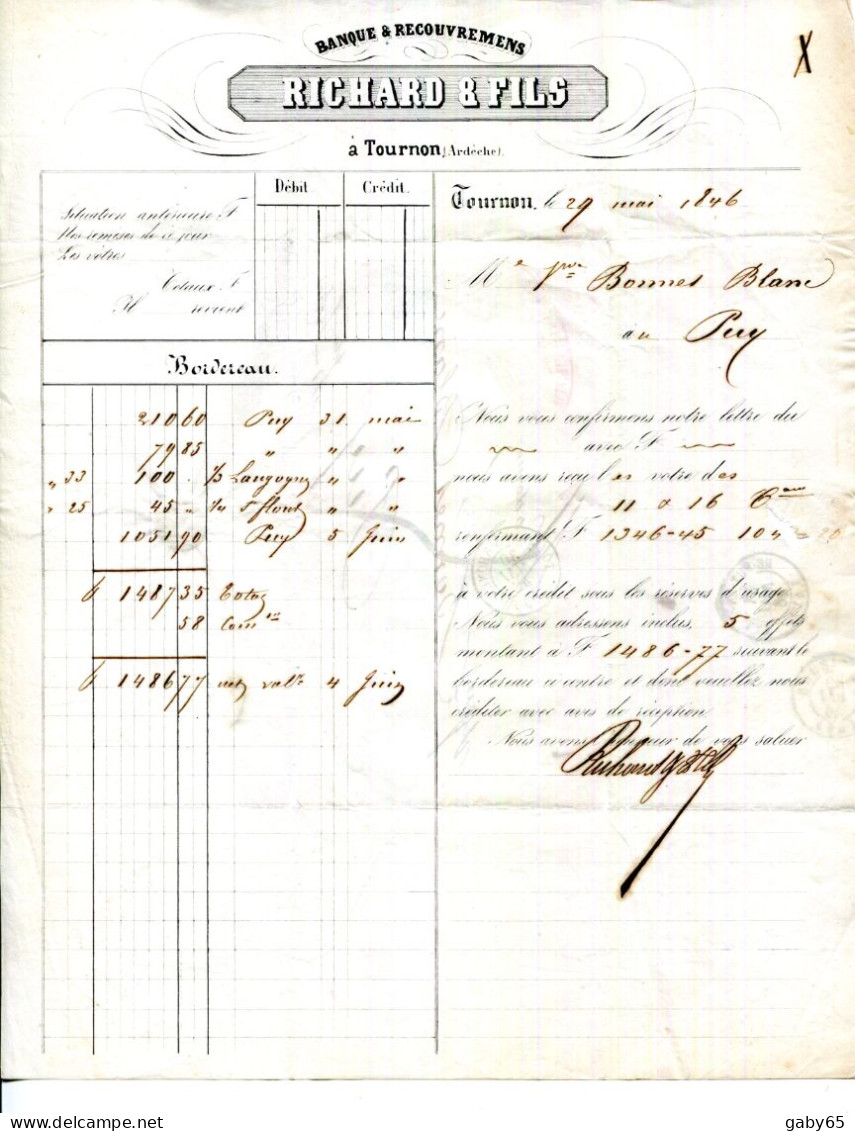 BANQUE & RECOUVREMENS
RICHARD & FILS
à Tournon (Ardèche).
Débit. Crédit.
Situation antérieure F
Nos remises de ce jour
Les vôtres
Totaux F
Il revient
Tournon, le 29 mai 1846
Bonnet Blanc
au Puy
Bordereau.
210 60 Puy 31 mai
79 85 " " "
" 33 100 . Langogne " "
" 25 45 " St flour " "
1051 90 Puy 5 Juin
F 1487 35
58 Com
F 1486 77 net val 4 Juin
Nous vous confirmons notre lettre du
avec F
nous avons reçu les votre des
11 & 16 Ct
renfermant F 1346-45
à votre crédit sous les réserves d'usage
Nous vous adressons inclus, 5 effets
montant à F 1486-77 suivant le
bordereau ci contre et dont veuillez nous
créditer avec avis de réception
Nous avons l'honneur de vous saluer
Richard & fils
gaby65